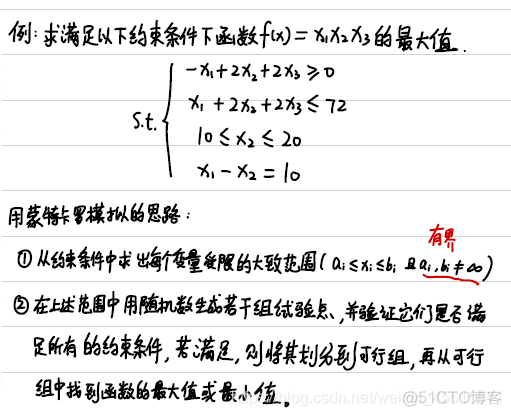 例：求满足以下约束条件下函数f(x)=x₁x₂x₃的最大值.
s.t. { -x₁+2x₂+2x₃≥0
x₁+2x₂+2x₃≤72
10≤x₂≤20
x₁-x₂=10
用蒙特卡罗模拟的思路：
有界
①从约束条件中求出每个变量受限的大致范围(aᵢ≤xᵢ≤bᵢ 且aᵢ,bᵢ≠∞)
②在上述范围中用随机数生成若干组试验点、并验证它们是否满
足所有的约束条件，若满足，则将其划分到可行组，再从可行
组中找到函数的最大值或最小值。
@51CTO博客